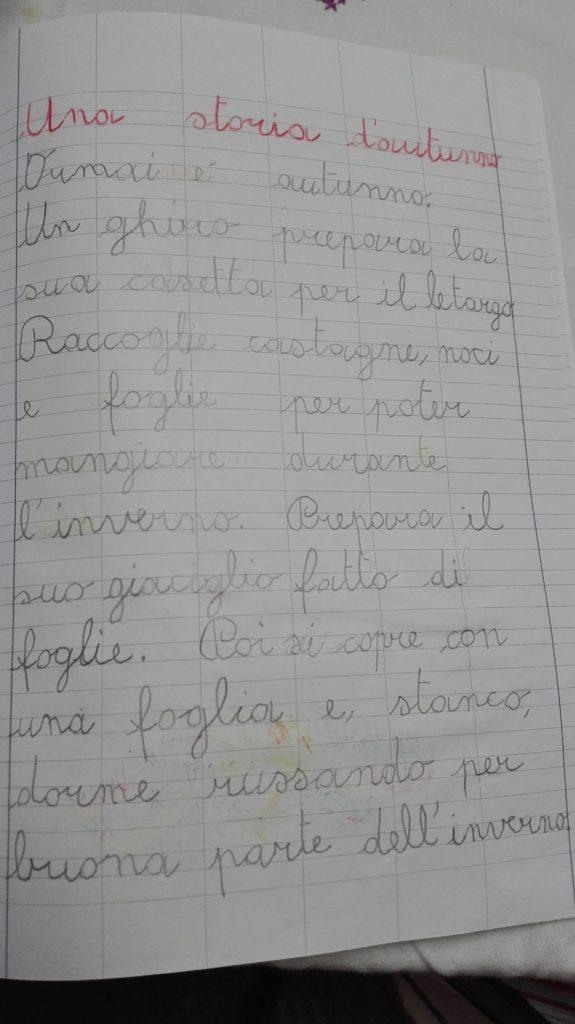 Una storia d'autunno
Oumai è autunno.
Un ghiro prepara la
sua casetta per il letargo
Raccoglie castagne, noci
e foglie per poter
mangiare durante
l'inverno. Prepara il
suo giaciglio fatto di
foglie. Poi si copre con
una foglia e, stanco,
dorme russando per
buona parte dell'inverno